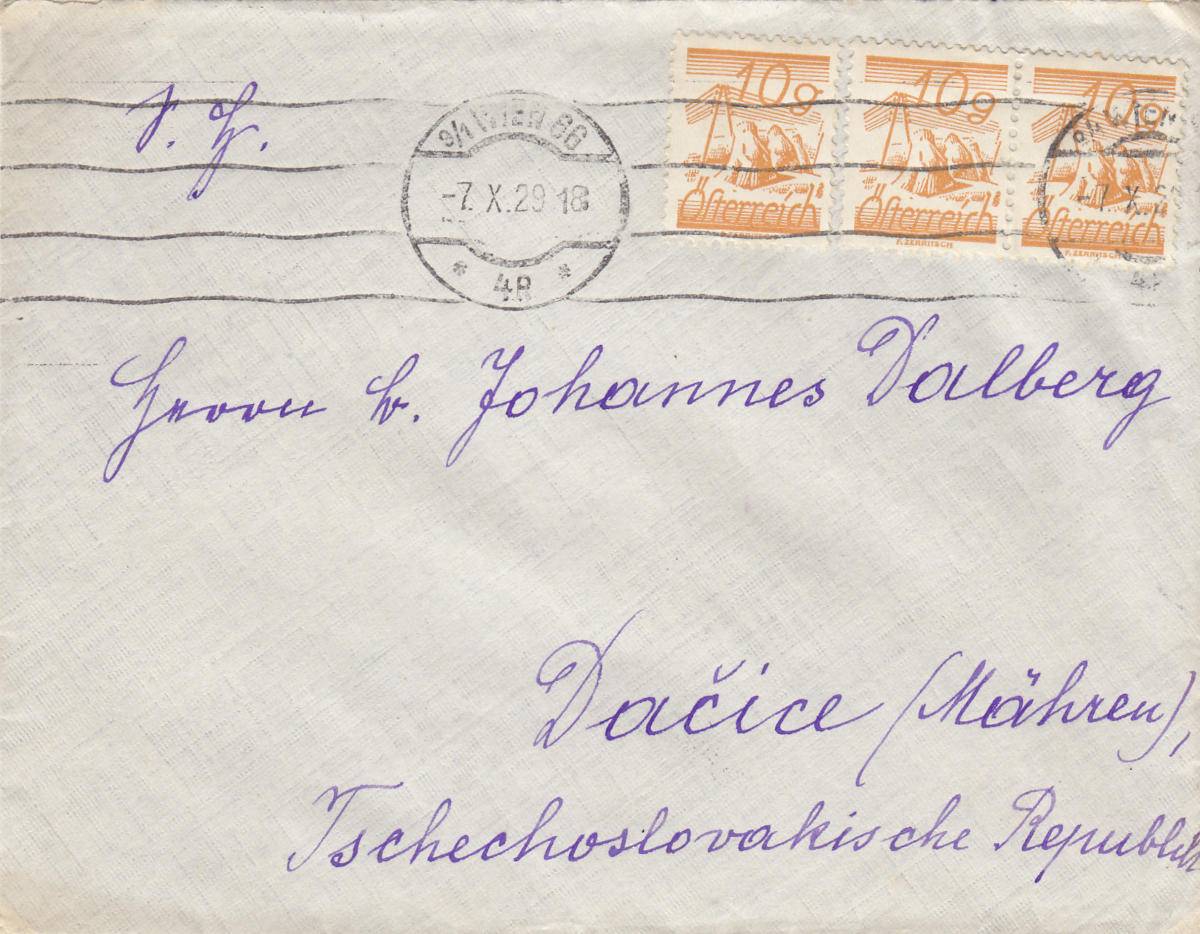 S. H.
9/1 WIEN 66
-7. X. 29 18
* 4R *
10g
Österreich
10g
Österreich
F. ZERRITSCH
10g
Österreich
F. ZERRITSCH
9/1 WIEN
-7. X.
Herrn b. Johannes Dalberg
Dačice (Mähren),
Tschechoslovakische Republik